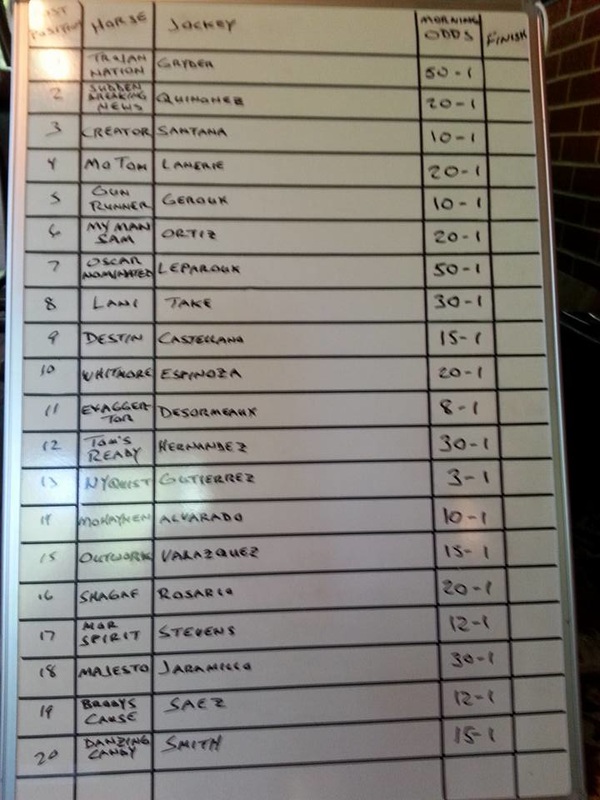 PST POSITION HORSE JOCKEY MORNING ODDS FINISH
1 TROJAN NATION GRYDER 50-1
2 SUDDEN BREAKING NEWS QUINONEZ 20-1
3 CREATOR SANTANA 10-1
4 MO TOM LANERIE 20-1
5 GUN RUNNER GEROUX 10-1
6 MY MAN SAM ORTIZ 20-1
7 OSCAR NOMINATED LEPAROUX 50-1
8 LANI TAKE 30-1
9 DESTIN CASTELLANO 15-1
10 WHITMORE ESPINOZA 20-1
11 EXAGGERTOR DESORMEAUX 8-1
12 TOM'S READY HERNANDEZ 30-1
13 NYQUIST GUTIERREZ 3-1
14 MOHAYMEN ALVARADO 10-1
15 OUTWORK VALAZQUEZ 15-1
16 SHAGAF ROSARIO 20-1
17 MOR SPIRIT STEVENS 12-1
18 MAJESTO JARAMILLO 30-1
19 BRODYS CAUSE SAEZ 12-1
20 DANZING CANDY SMITH 15-1